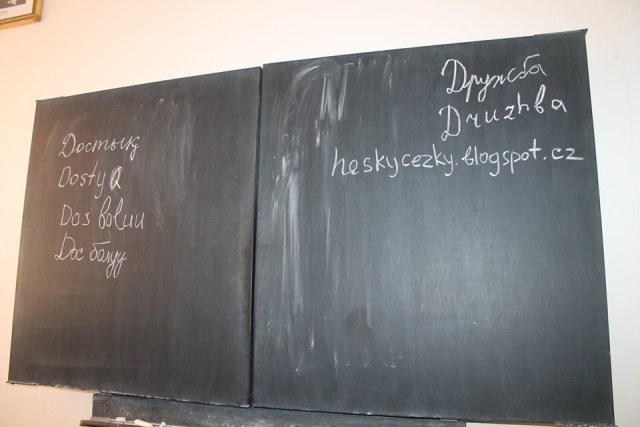 Достық
Dostyq
Dos boluu
Дос болуу
Дружба
Druzhba
heskycezky.blogspot.cz